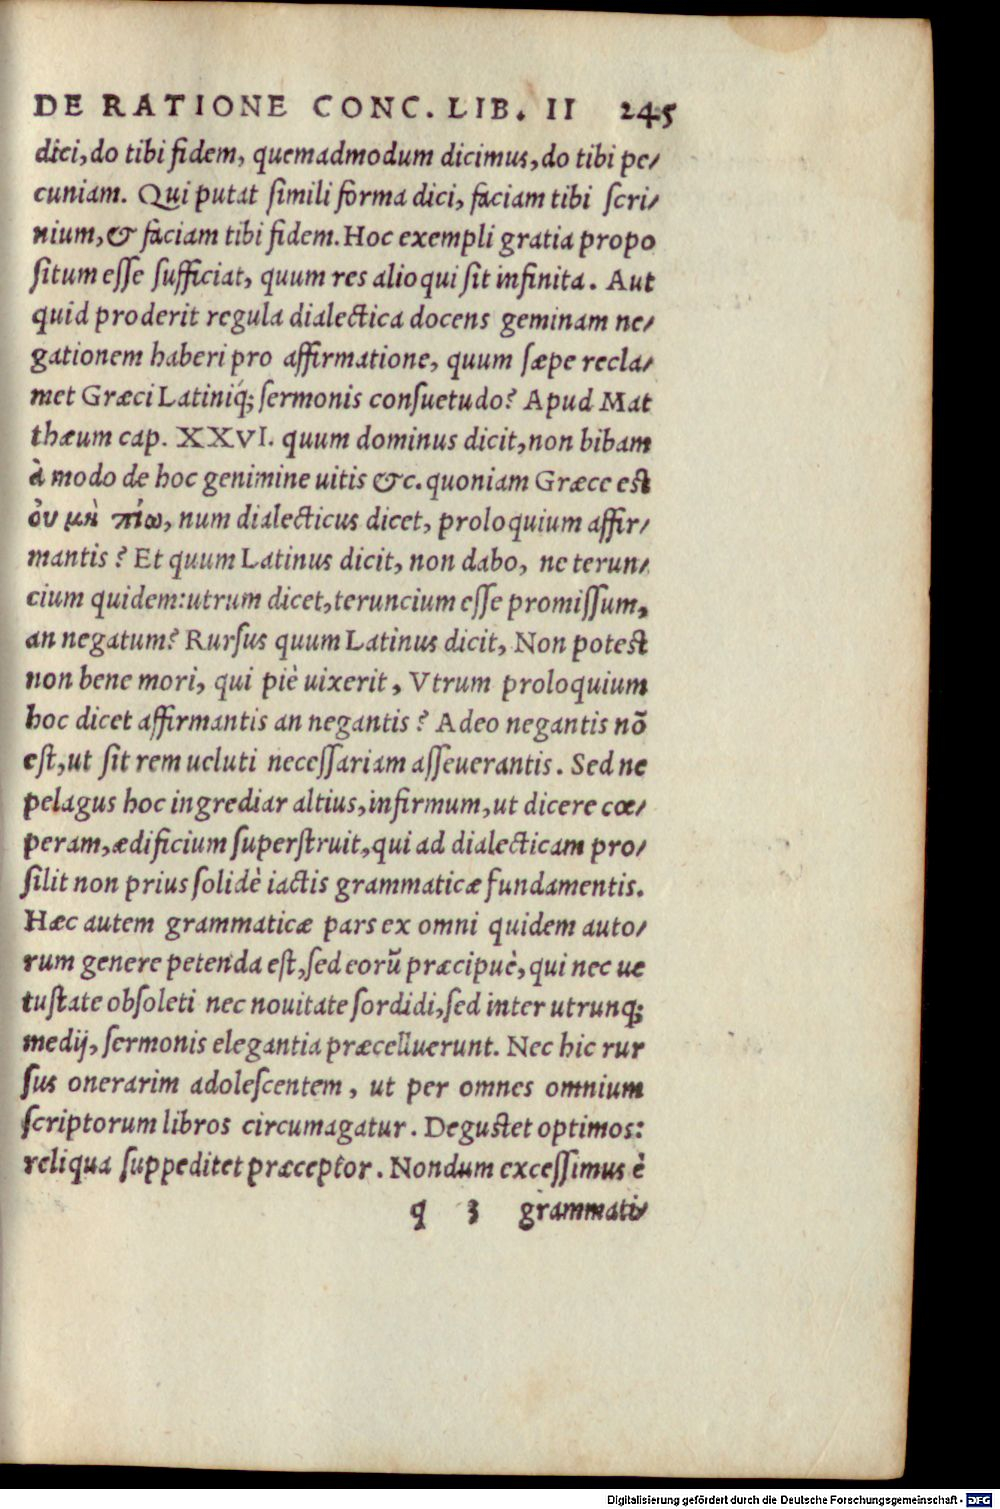 DE RATIONE CONC. LIB. II 245
dici, do tibi fidem, quemadmodum dicimus, do tibi pe⸗
cuniam. Qui putat ſimili forma dici, faciam tibi ſcri⸗
nium, & faciam tibi fidem. Hoc exempli gratia propo
ſitum eſſe ſufficiat, quum res alioqui ſit infinita. Aut
quid proderit regula dialectica docens geminam ne⸗
gationem haberi pro affirmatione, quum ſæpe recla⸗
met Græci Latiniq́; ſermonis conſuetudo? Apud Mat
thæum cap. XXVI. quum dominus dicit, non bibam
à modo de hoc genimine uitis &c. quoniam Græce est
ὀυ μὴ πίω, num dialecticus dicet, proloquium affir⸗
mantis? Et quum Latinus dicit, non dabo, ne terun⸗
cium quidem: utrum dicet, teruncium eſſe promiſſum,
an negatum? Rurſus quum Latinus dicit, Non potest
non bene mori, qui piè uixerit, Vtrum proloquium
hoc dicet affirmantis an negantis? Adeo negantis nō
eſt, ut ſit rem ueluti neceſſariam aſſeuerantis. Sed ne
pelagus hoc ingrediar altius, infirmum, ut dicere cœ⸗
peram, ædificium ſuperſtruit, qui ad dialecticam pro⸗
ſilit non prius ſolidè iactis grammaticæ fundamentis.
Hæc autem grammaticæ pars ex omni quidem auto⸗
rum genere petenda eſt, ſed eorū præcipuè, qui nec ue
tuſtate obſoleti nec nouitate ſordidi, ſed inter utrunq;
medij, ſermonis elegantia præcelluerunt. Nec hic rur
ſus onerarim adoleſcentem, ut per omnes omnium
ſcriptorum libros circumagatur. Degustet optimos:
reliqua ſuppeditet præceptor. Nondum exceſſimus è
q 3 grammati⸗
Digitalisierung gefördert durch die Deutsche Forschungsgemeinschaft - DFG